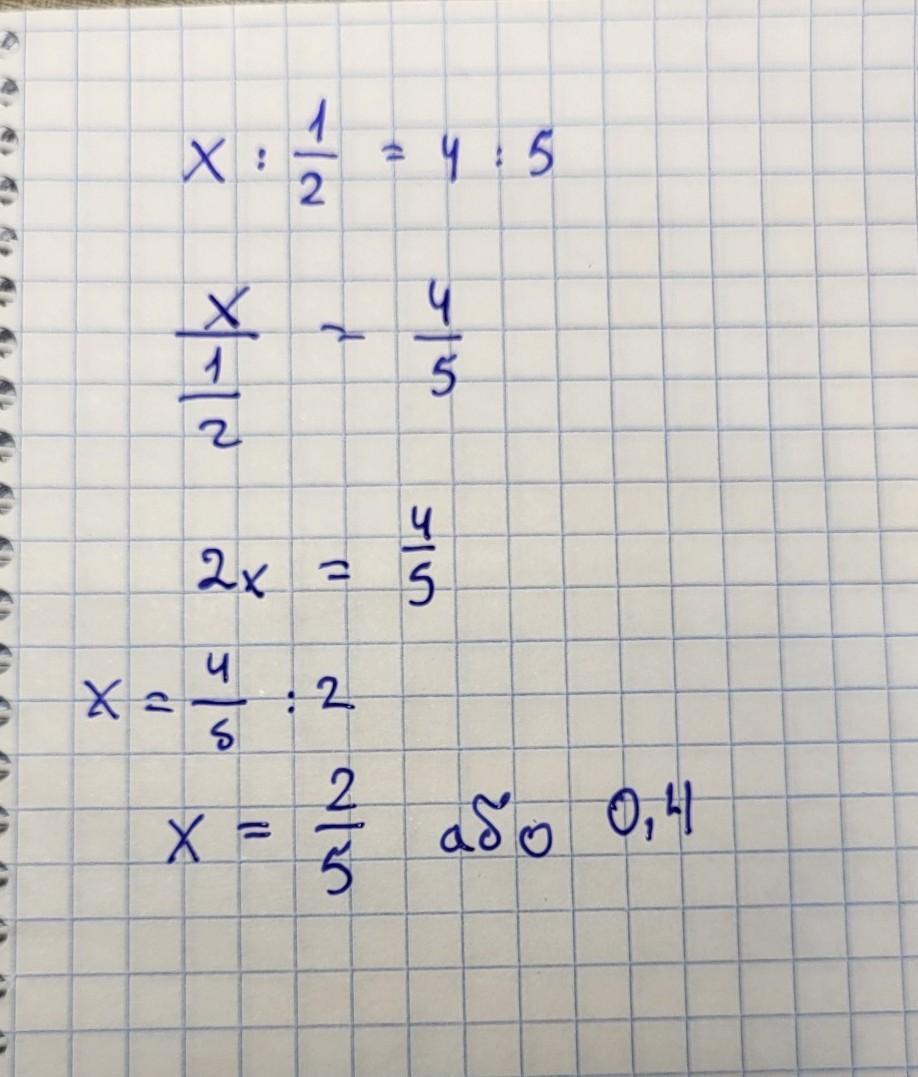 x : 1/2 = 4 : 5
x/(1/2) = 4/5
2x = 4/5
x = 4/5 : 2
x = 2/5 або 0,4